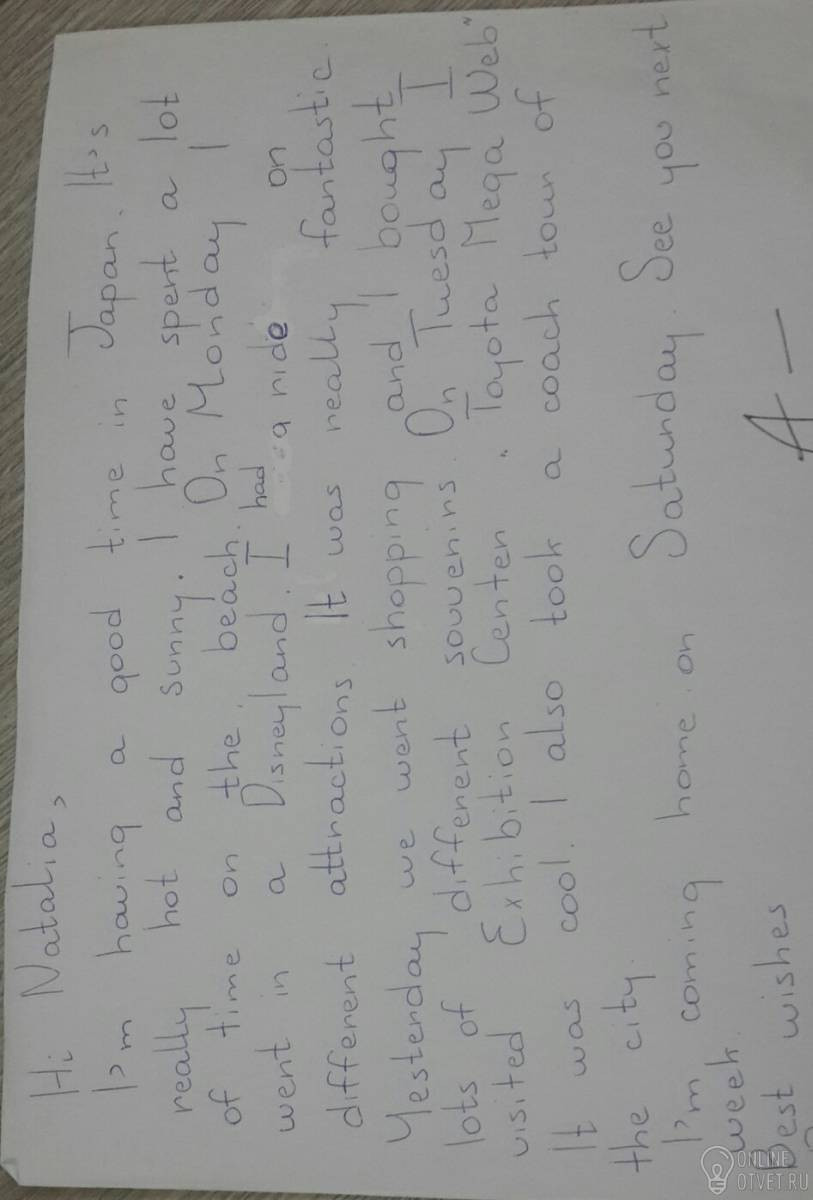 Hi Natalia,
I'm having a good time in Japan. It's
really hot and sunny. I have spent a lot
of time on the beach. On Monday I
went in a Disneyland. I had a ride on
different attractions. It was really fantastic.
Yesterday we went shopping and I bought
lots of different souvenirs. On Tuesday I
visited Exhibition Center "Toyota Mega Web"
It was cool. I also took a coach tour of
the city.
I'm coming home on Saturday. See you next
week.
Best wishes
A -
ONLINE
OTVET.RU